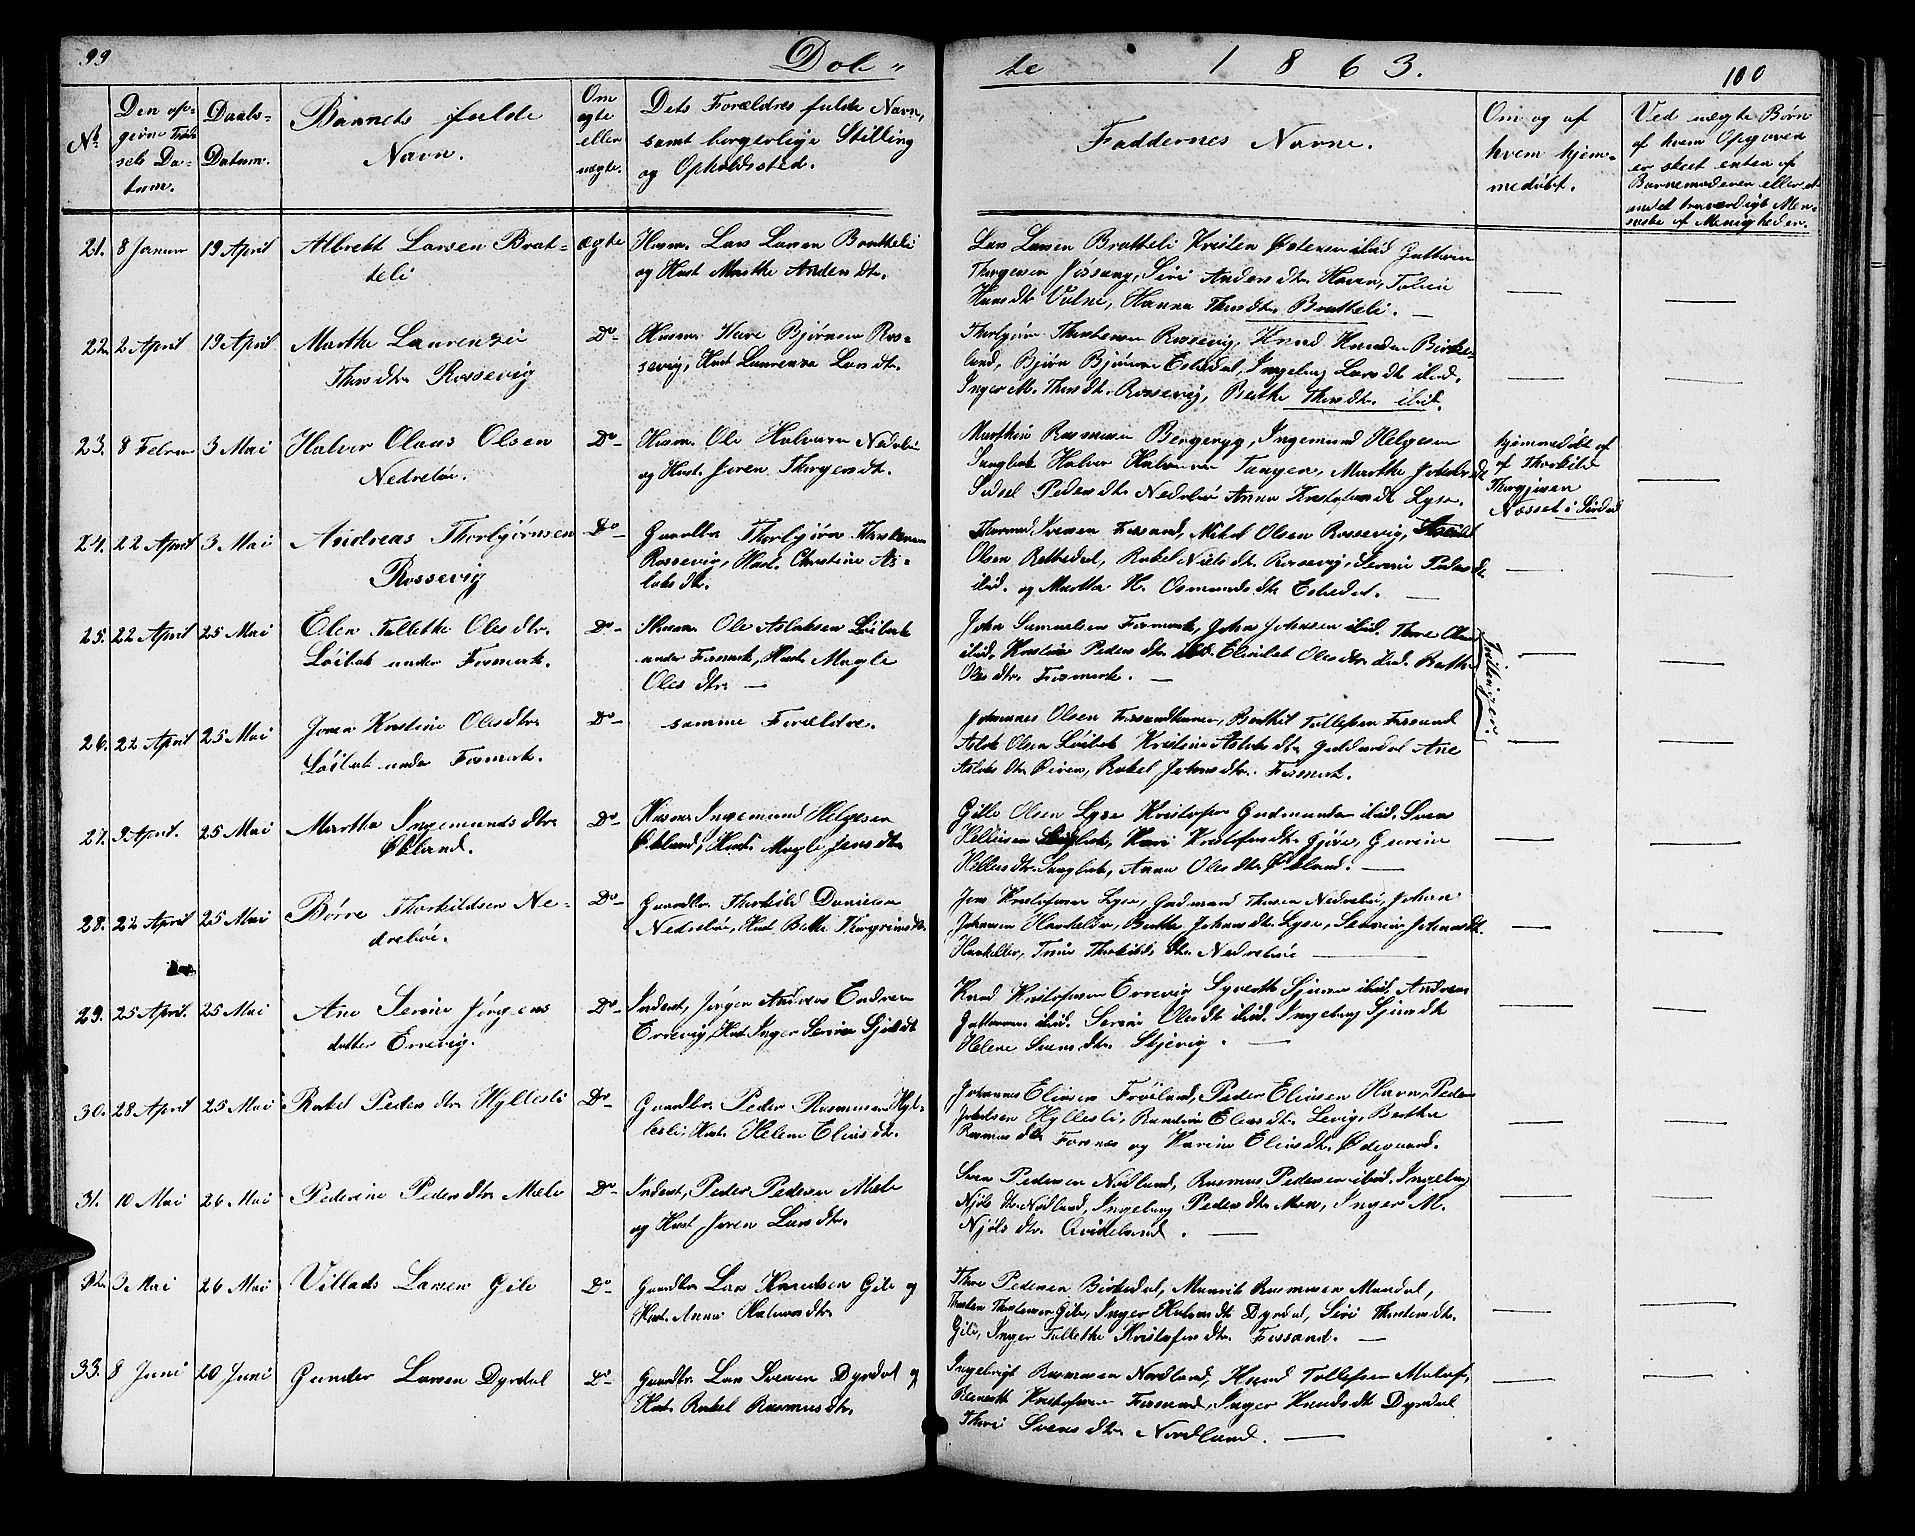 99
Døb-
te 1863.
100
№
Den op-
givne Fød-
sels Da-
tum.
Daabs-
Datum.
Barnets fulde
Navn.
Om
ægte
eller
uægte.
Dets Forældres fulde Navn,
samt borgerlige Stilling
og Opholdssted.
Faddernes Navne.
Om og af
hvem hjem-
medøbt.
Ved uægte Børn
af hvem Opgaven
er skeet enten af
Barnemoderen eller et
andet troværdigt Men-
neske af Menigheden.
21. 8 Januar 19 April Albrekt Larsen Brat-
teli
ægte
Husm. Lars Larsen Bratteli
og Hust. Marthe Andersdtr.
Lars Larsen Bratteli Kristen Østensen ibid Guttorm
Thorgersen Jøssang, Siri Andersdtr. Haven,
Hansdtr. Hanna Thorsdtr. Bratteli. —
22. 2 April 19 April Marthe Laurenze
Thorsdtr. Rossevig
Do-
Husm. Thore Bjørnsen Ros-
sevig, Hust Laurenze Larsdtr.
Thorbjørn Thorstensen Rossevig, Knud Knudsen Birke-
land, Bjørn Bjørnsen Eskedal, Ingeborg Larsdtr ibid.
Inger M. Thorsdtr. Rossevig, Berthe Thorsdtr. ibid.
23. 8 Februar 3 Mai Halvor Olaus Olsen
Nedrebøe.
Do-
Husm. Ole Halvorsen Nedrebøe
og Hust. Joren Thorgersdtr.
Rasmusen Bergeryg, Ingemund Helgesen
Sangbak Halvor Halvorsen Tangen, Marthe
Sidsel Pedersdtr. Nedrebøe Anna Kristofersdtr Lyse.
hjemmedøbt af
af Thorkild
Thorgjersen
Næsset i Sirdal
24. 22 April 3 Mai Andreas Thorbjørnsen
Rossevig
Do-
Gaardbr. Thorbjørn Thorstensen
Rossevig, Hust. Christine As-
laksdtr.
Svensen Forsand, Mikal Olsen Rossevig,
Olsen Rettedal, Rakel Nielsdtr. Rossevig, Serine Pedersdtr
ibid. og Martha H. Osmundsdtr Eskedal. —
25. 22 April 25 Mai Elen Tallette Olesdtr.
Løibak under Fosmark.
Do-
Husm. Ole Aslaksen Løibak
under Fosmark, Hust. Magle
Olesdtr. —
John Samuelsen Fosmark, John Johnsen ibid. Thore Olsen
ibid, Kristine Pedersdtr ibid. Elisabet Olesdtr. ibid. Berthe
Olesdtr. Fosmark. —
Tvillinger.
26. 22 April 25 Mai Joren Kristine Olesdtr.
Løibak under Fosmark.
Do-
samme Forældre.
Johannes Olsen Forsandhaven, Berthil Tollefsen Forsand
Aslak Olsen Løibak Kristine Aslaksdtr. Ane
Aslaksdtr. Øiren, Rakel Johnsdtr. Fosmark.
27. 9 April. 25 Mai Martha Ingemundsdtr.
Økland.
Do-
Husm. Ingemund Helgesen
Økland, Hust. Magle Jensdtr.
Gille Olsen Lyse Kristofer Gudmundsen ibid. Sven
Helliesen Sangbak, Kari Kristofersdtr. Gjøse, Gurine
Helliesdtr. Sangbak, Anna Olesdtr. Økland. —
28. 22 April 25 Mai Børre Thorkildsen Ne-
drebøe.
Do-
Gaardbr. Thorkild Danielsen
Nedrebøe, Hust Berte Thorgrimsdtr.
Jens Kristofersen Lyse, Gudmund Thorsen Nedrebøe, Johan
Johansen Haukelien, Berthe Johansdtr. Lyse, Serine Johansdtr.
Haukelien, Trine Thorkildsdtr. Nedrebøe —
29. 25 April. 25 Mai Ane Serine Jørgens
datter Errevig.
Do-
Inderst, Jørgen Andreas Endresen
Errevig, Hust Inger Serine Sjursdtr
Knud Kristofersen Errevig Syverth Sjursen ibid. Andreas
Guttormsen ibid. Serine Olesdtr ibid. Ingeborg Sjursdtr
Helene Svensdtr. Skjævig. —
30. 28 April 25 Mai Rakel Pedersdtr Hyllesli
Do-
Gaardbr. Peder Rasmusen Hyl-
lesli, Hust. Helene Eliasdtr.
Johannes Eliasen Frøiland, Peder Eliasen Haven, Peder
Jakobsen Hyllesli, Eliasdtr. Levig, Berthe
Rasmusdtr Fossnes og Karine Eliasdtr. Ødegaard.
31. 10 Mai 26 Mai Pederine Pedersdtr. Mæle
Do-
Inderst, Peder Pedersen Mæle
og Hust Joren Larsdtr.
Sven Pedersen Nordland, Rasmus Pedersen ibid. Ingeborg
Njelsdtr. Nordland, Ingeborg Pedersdtr. Moen, Inger M.
Njelsdtr. Qvikeland. —
32. 3 Mai 26 Mai Villads Larsen Gile
Do-
Gaardbr. Lars Knudsen Gile og
Hust. Anna Halvorsdtr
Thore Pedersen Birkedal, Maurits Rasmusen Mandal,
Thorsten Thorstensen Gile, Inger Halvorsdtr. Dyrdal, Siri Thorstensdtr.
Gile, Inger Tallette Kristofersdtr. Forsand. —
33. 8 Juni 20 Juni Gunder Larsen Dyrdal
Do-
Gaardbr. Lars Svensen Dyrdal og
Hust. Rakel Rasmusdtr.
Ingebrigt Rasmusen Nordland, Knud Tollefsen
Kristofersen Forsand, Inger Knudsdtr Dyrdal
Svensdtr. Nordland. —